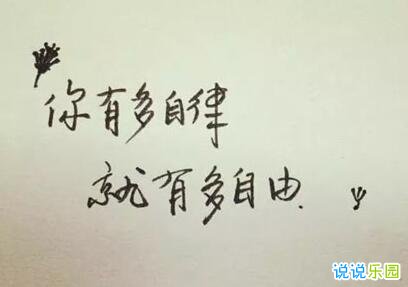 你有多自律
就有多自由.
说说乐园